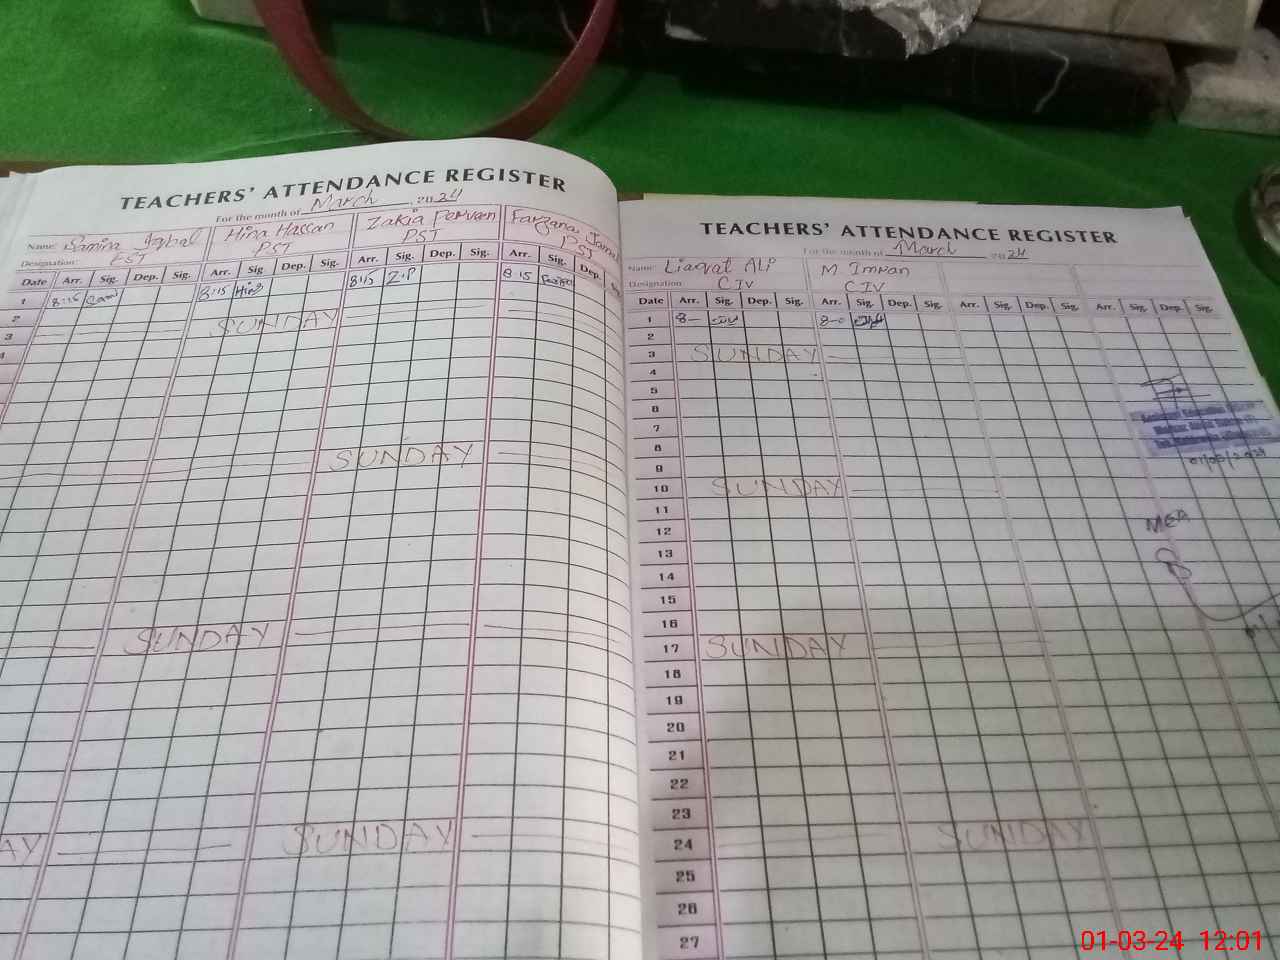 TEACHERS' ATTENDANCE REGISTER
For the month of March 2024
Name: Samina Iqbal Hina Hassan Zakia Parveen Farzana
Designation: PST PST PST
Date Arr. Sig. Dep. Sig. Arr. Sig. Dep. Sig. Arr. Sig. Dep. Sig. Arr. Sig. Dep.
1 8:15 8:15 Hina 8:15 Z.P 8:15
2
3 SUNDAY
4
SUNDAY
SUNDAY
AY SUNDAY
TEACHERS' ATTENDANCE REGISTER
For the month of March 2024
Name: Liaqat Ali M. Imran
Designation: C IV C IV
Date Arr. Sig. Dep. Sig. Arr. Sig. Dep. Sig. Arr. Sig. Dep. Sig. Arr. Sig. Dep. Sig.
1 8- 8-0
2
3 SUNDAY
4
5
6
7
8
9
10 SUNDAY
11
12
13
14
15
16
17 SUNDAY
18
19
20
21
22
23
24 SUNDAY
25
26
27
01/03/2024
MEA
01-03-24 12:01